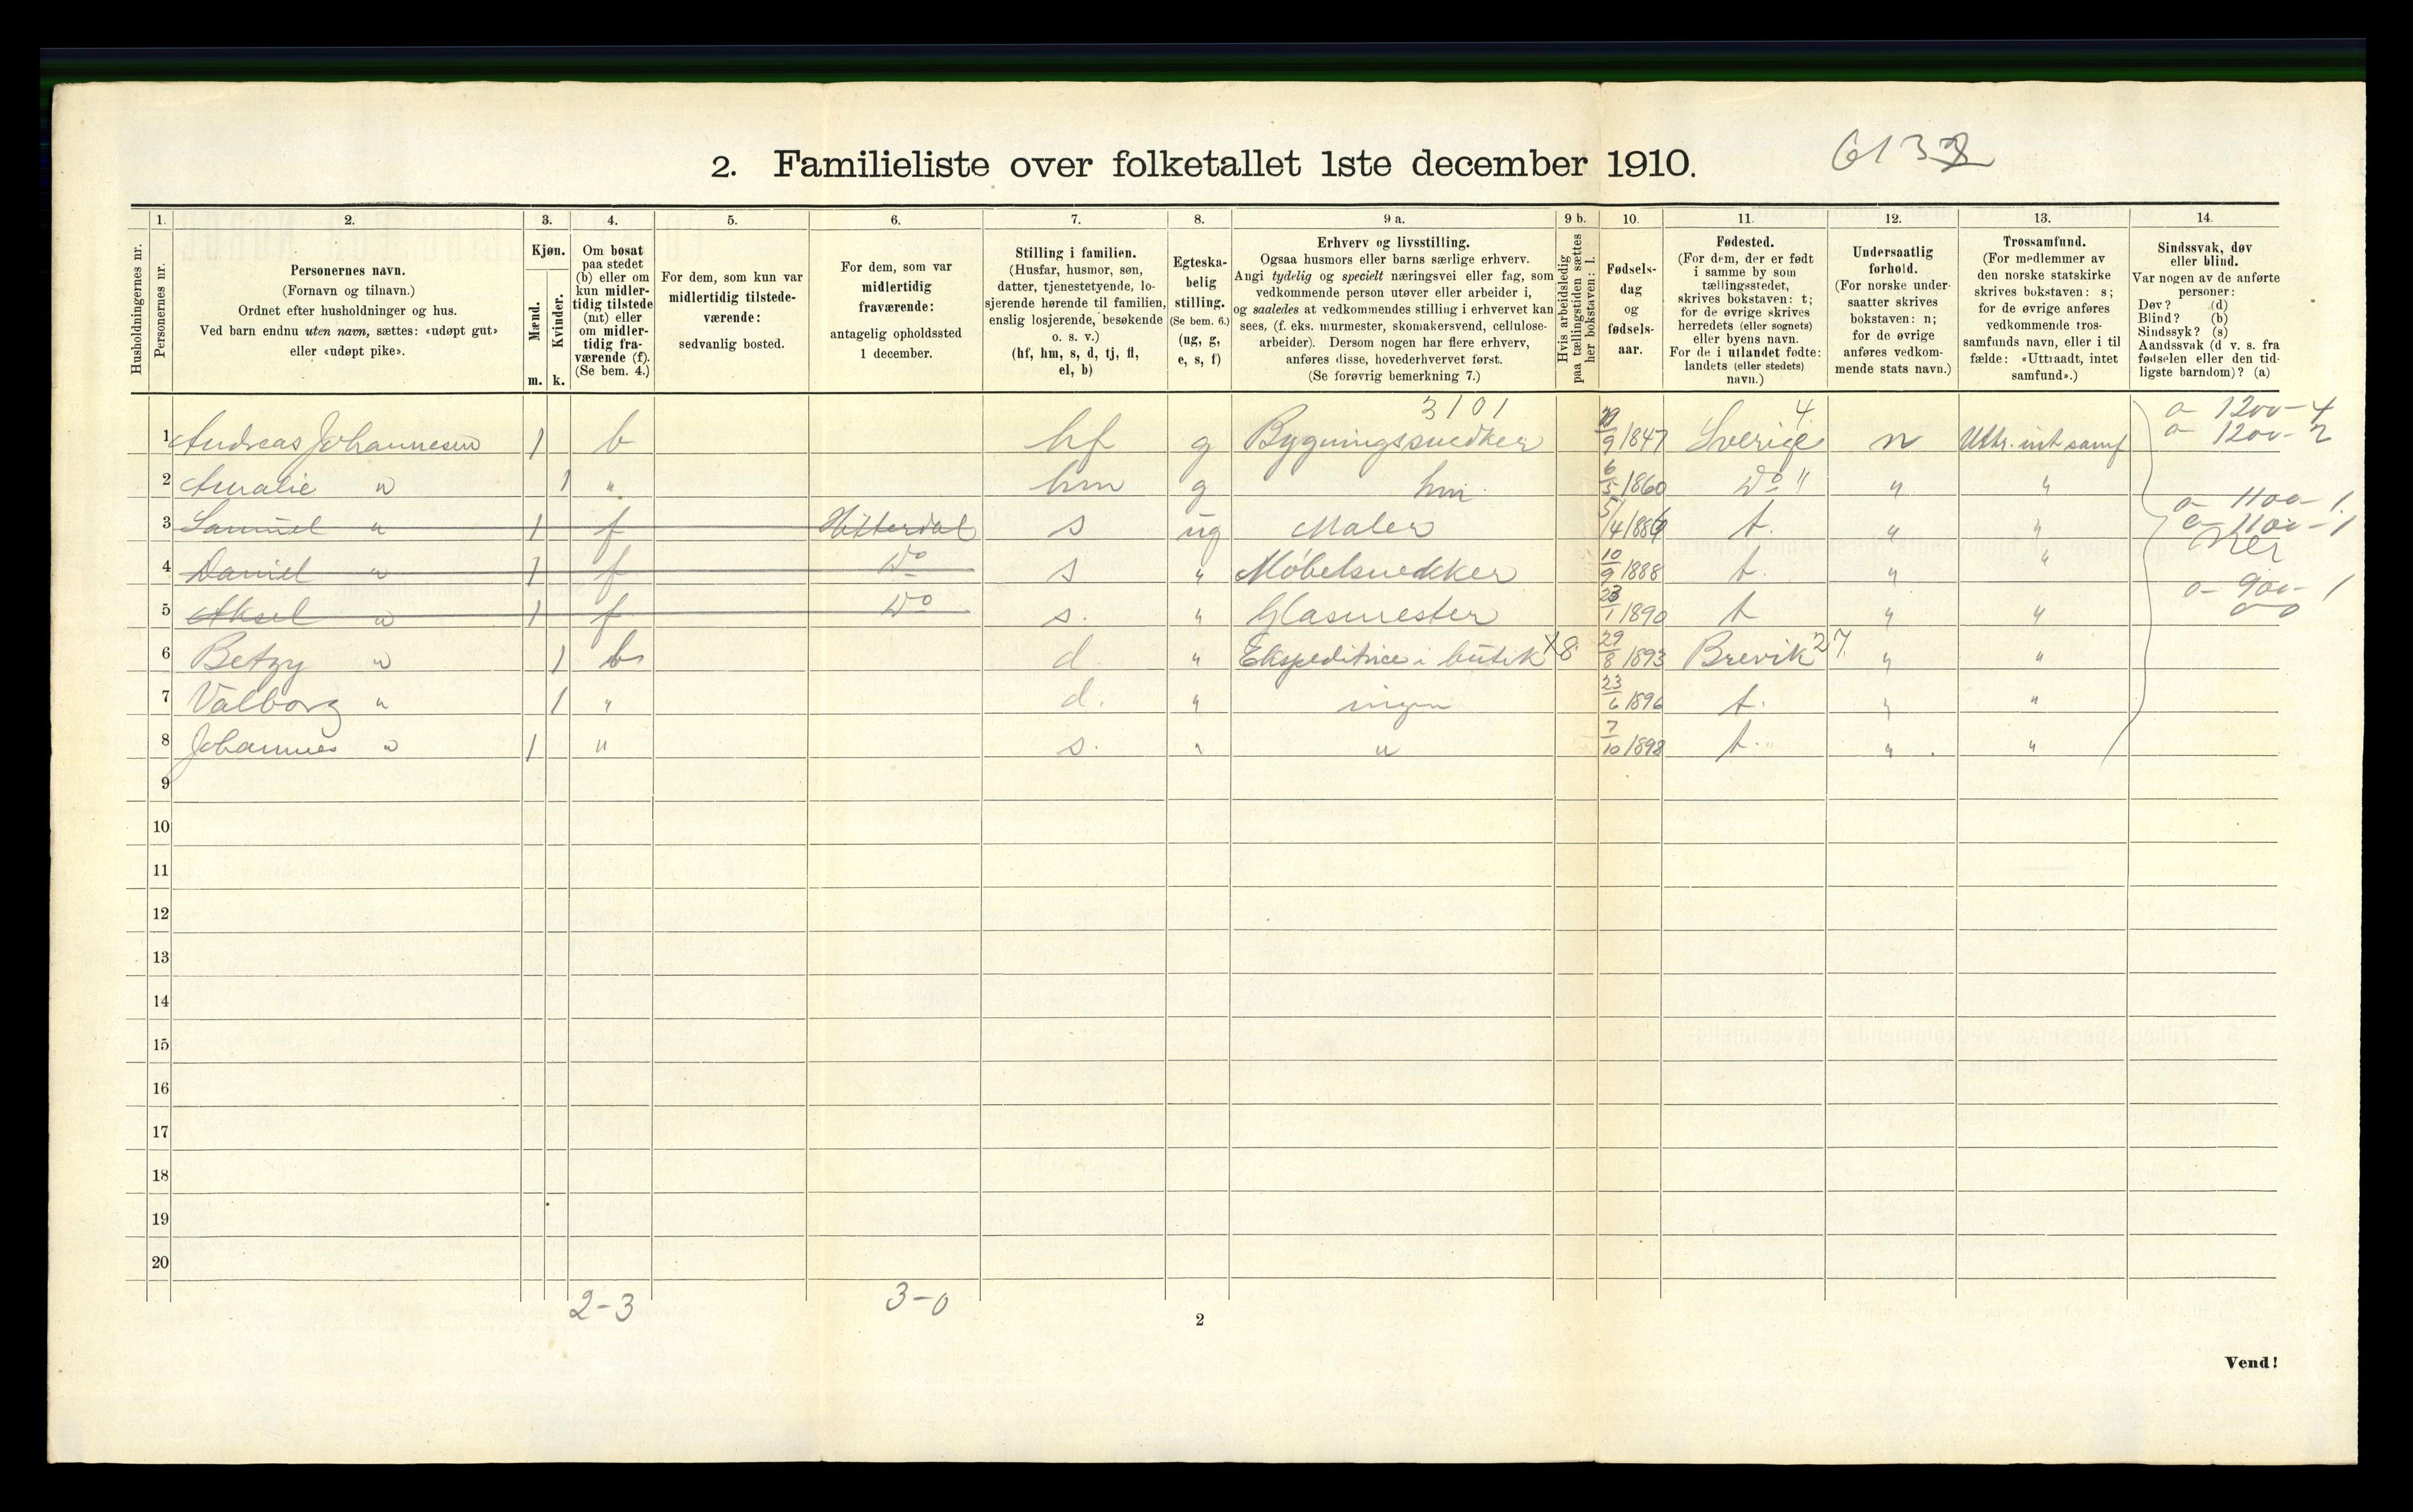 2. Familieliste over folketallet 1ste december 1910.
6132
1. 2. 3. 4. 5. 6. 7. 8. 9 a. 9 b. 10. 11. 12. 13. 14.
Husholdningernes nr.
Personernes nr.
Personernes navn.
(Fornavn og tilnavn.)
Ordnet efter husholdninger og hus.
Ved barn endnu uten navn, sættes: «udøpt gut»
eller «udøpt pike».
Kjøn.
Mænd.
Kvinder.
m. k.
Om bosat
paa stedet
(b) eller om
kun midler-
tidig tilstede
(mt) eller
om midler-
tidig fra-
værende (f).
(Se bem. 4.)
For dem, som kun var
midlertidig tilstede-
værende:
sedvanlig bosted.
For dem, som var
midlertidig
fraværende:
antagelig opholdssted
1 december.
Stilling i familien.
(Husfar, husmor, søn,
datter, tjenestetyende, lo-
sjerende hørende til familien,
enslig losjerende, besøkende
o. s. v.)
(hf, hm, s, d, tj, fl,
el, b)
Egteska-
belig
stilling.
(Se bem. 6.)
(ug, g,
e, s, f)
Erhverv og livsstilling.
Ogsaa husmors eller barns særlige erhverv.
Angi tydelig og specielt næringsvei eller fag, som
vedkommende person utøver eller arbeider i,
og saaledes at vedkommendes stilling i erhvervet kan
sees, (f. eks. murmester, skomakersvend, cellulose-
arbeider). Dersom nogen har flere erhverv,
anføres disse, hovederhvervet først.
(Se forøvrig bemerkning 7.)
Hvis arbeidsledig
paa tællingstiden sættes
her bokstaven: l.
Fødsels-
dag
og
fødsels-
aar.
Fødested.
(For dem, der er født
i samme by som
tællingsstedet,
skrives bokstaven: t;
for de øvrige skrives
herredets (eller sognets)
eller byens navn.
For de i utlandet fødte:
landets (eller stedets)
navn.)
Undersaatlig
forhold.
(For norske under-
saatter skrives
bokstaven: n;
for de øvrige
anføres vedkom-
mende stats navn.)
Trossamfund.
(For medlemmer av
den norske statskirke
skrives bokstaven: s;
for de øvrige anføres
vedkommende tros-
samfunds navn, eller i til
fælde: «Uttraadt, intet
samfund».)
Sindssvak, døv
eller blind.
Var nogen av de anførte
personer:
Døv? (d)
Blind? (b)
Sindssyk? (s)
Aandssvak (d v. s. fra
fødselen eller den tid-
ligste barndom)? (a)
3101 4. a- 1200- 4
1 Andreas Johannesen 1 b hf g Bygningssnedker 9 1847 Sverige n Uttr. int samf a- 1200- 2
2 Amalie " 1 " hm g hm. 6/5 1860 Do " " "
a- 1100- 1
3 Samuel " 1 f Hitterdal s ug Maler 5/4 1886 t. " " a- 1100- 1
4 Daniel " 1 f Do s " Møbelsnekker 10/9 1888 t. " "
a- 900- 1
5 Aksel " 1 f Do s. " Glasmester 23/1 1890 t " "
6 Betzy " 1 b d " Ekspeditrice i butik X8 29/8 1893 Brevik 27. " "
7 Valborg " 1 " d. " ingen 23/6 1896 t. " "
8 Johannes " 1 " s. " " 7/10 1898 t. " "
9
10
11
12
13
14
15
16
17
18
19
20
2-3 3-0
2
Vend!